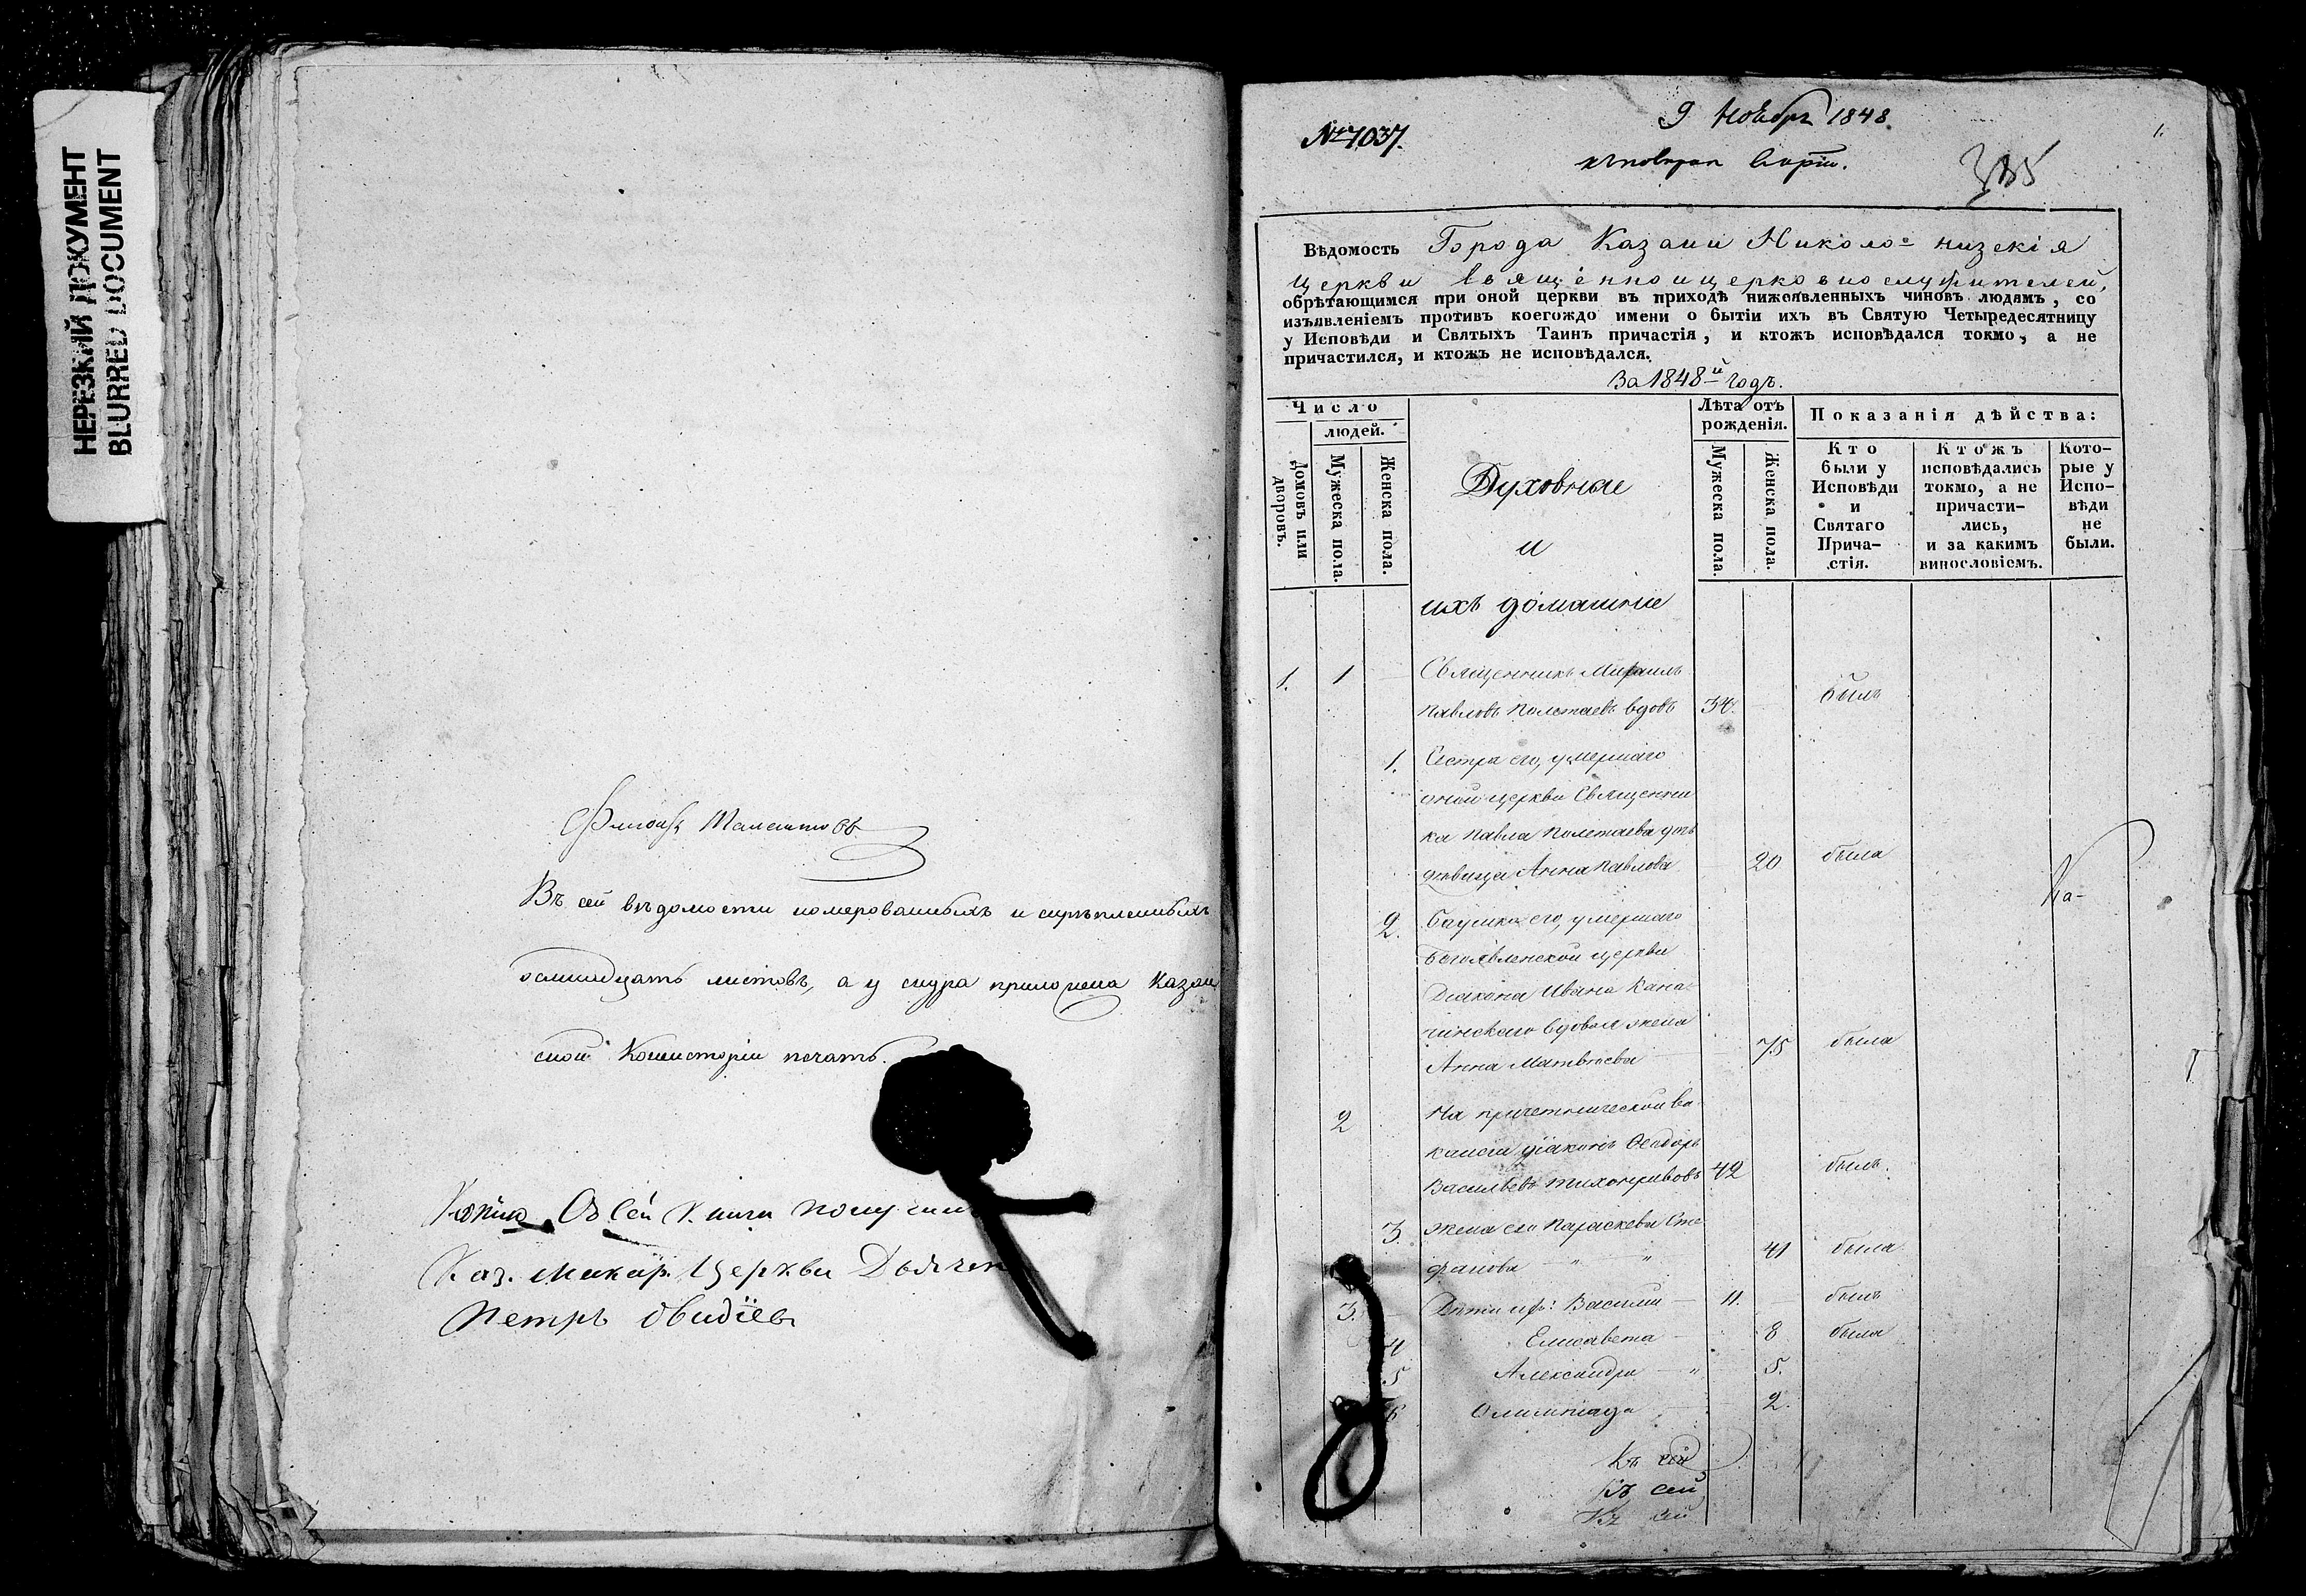 НЕРЕЗКИЙ ДОКУМЕНТ
BLURRED DOCUMENT
Въ сей вѣдомости номерованныхъ и скрѣпленныхъ
осмнадцать листовъ, а у снура приложена Казан
ской Консисторіи печать.
Копію Съ Сей Книги получилъ
Каз. Макар. Церкви Дьячек
Петръ Овидіевъ
№ 7037.
9 Ноября 1848.
1.
335
Вѣдомость Города Казани Николо-низскія
церкви Священноицерковнослужителей,
обрѣтающимся при оной церкви въ приходѣ нижеявленныхъ чиновъ людямъ, со
изъявленіемъ противъ коегождо имени о бытіи ихъ въ Святую Четыредесятницу
у Исповѣди и Святыхъ Таинъ причастія, и ктожъ исповѣдался токмо, а не
причастился, и ктожъ не исповѣдался.
За 1848-й годъ.
Число
людей.
Домовъ или дворовъ.
Мужеска пола.
Женска пола.
Духовные
и
ихъ домашніе
Лѣта отъ
рожденія.
Мужеска пола.
Женска пола.
Показанія дѣйства:
Кто
были у
Исповѣди
и
Святаго
Прича-
стія.
Ктожъ
исповѣдались
токмо, а не
причасти-
лись,
и за какимъ
винословіемъ.
Кото-
рые у
Испо-
вѣди
не
были.
1. 1 Священникъ Михаилъ
Павловъ Полетаевъ вдовъ 34. былъ
1. Сестра его, умершаго
оной церкви Священни
ка Павла Полетаева дочь
дѣвица Анна Павлова 20 была
Ка-
2. Баушка его, умершаго
Богоявленской церкви
Діакона Ивана Кана-
чинскаго вдовая жена
Анна Матвѣева 75 была
2 На причетнической ва
кансіи діаконъ Ѳеодоръ
Васильевъ Тихонравовъ 42 былъ.
3. Жена его Параскева Сте
фанова 41 была
3. Дѣти ихъ: Василій 11. былъ
4 Елисавета 8 была
5 Александра 5.
6 Олимпіада 2.
Къ сей
Къ сей
Къ сей